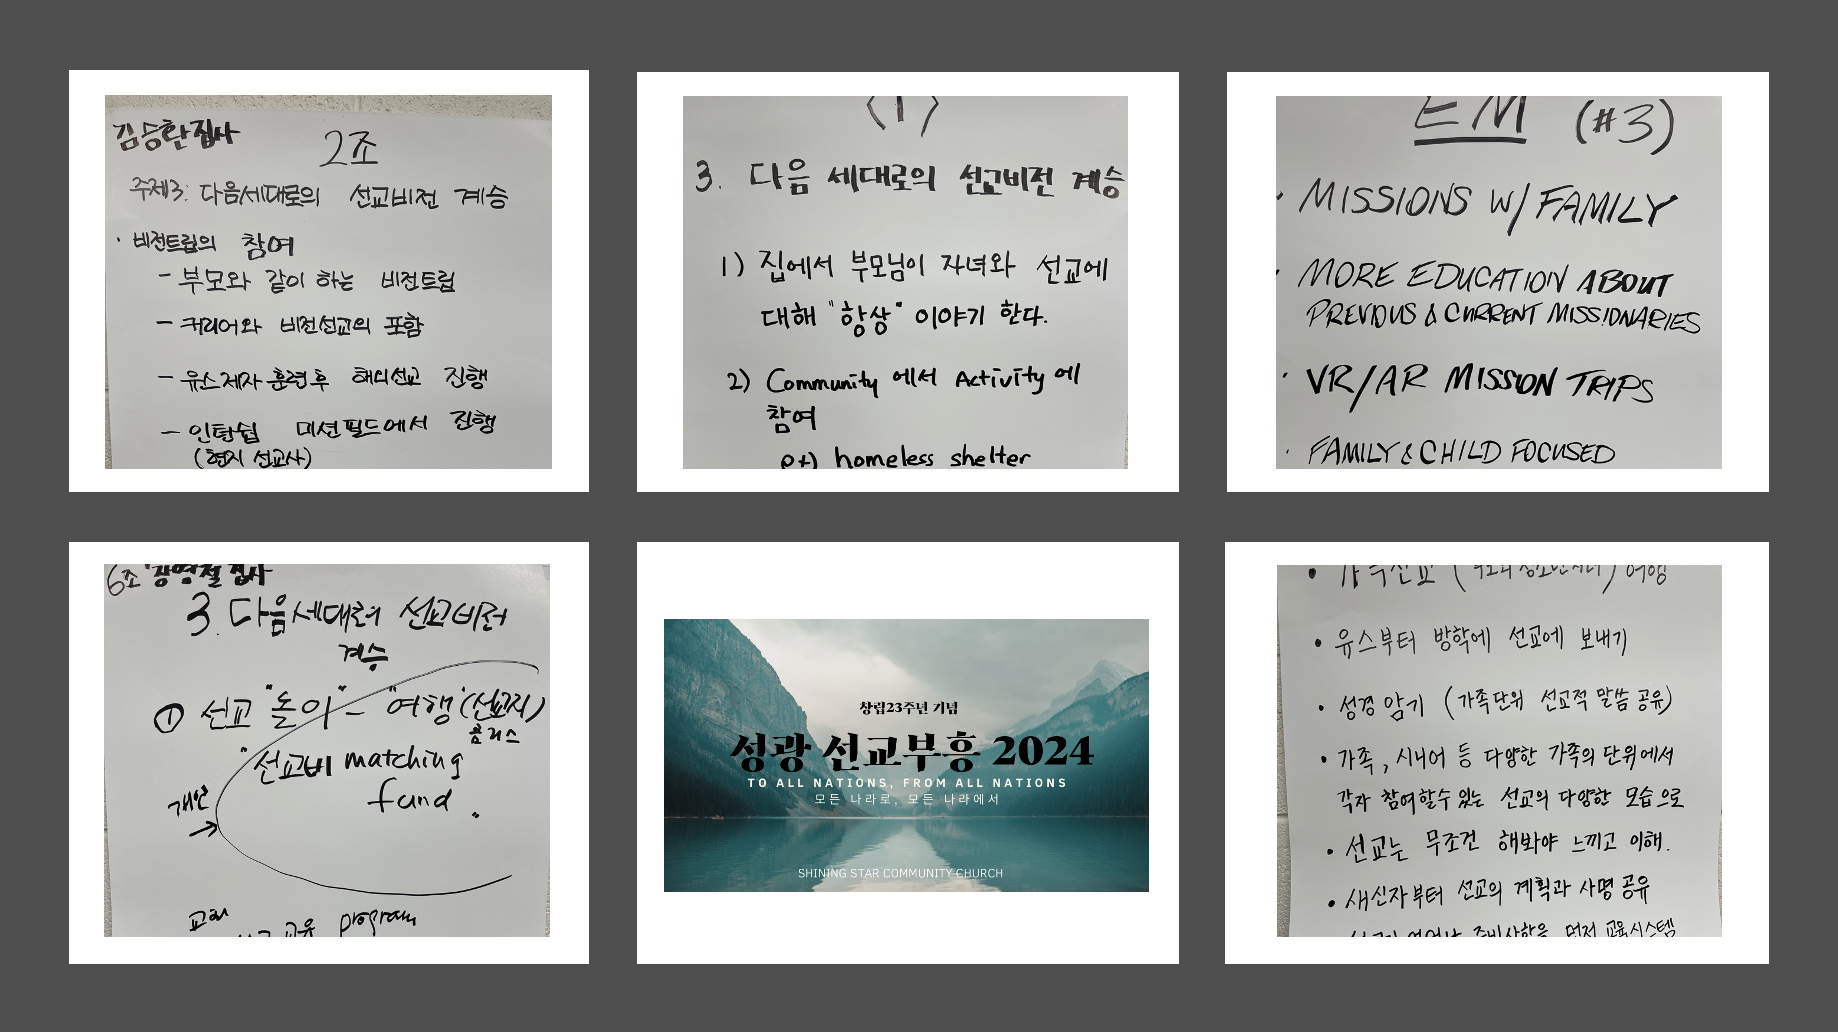 김승환 집사
2조
주제3: 다음세대로의 선교비전 계승
· 비전트립의 참여
- 부모와 같이 하는 비전트립
- 커리어와 비전선교의 포함
- 유스제자 훈련후 해외선교 진행
- 인턴쉽 미션필드에서 진행
(현지 선교사)
(1)
3. 다음 세대로의 선교비전 계승
1) 집에서 부모님이 자녀와 선교에
대해 "항상" 이야기 한다.
2) Community 에서 Activity 에
참여
homeless shelter
EM (#3)
· MISSIONS W/ FAMILY
· MORE EDUCATION ABOUT
PREVIOUS & CURRENT MISSIONARIES
· VR/AR MISSION TRIPS
· FAMILY & CHILD FOCUSED
6조 집사
3. 다음세대로의 선교비전
계승
① 선교 "돌아" - "여행"(선교지)
"선교비 matching
fund"
개인
교회
교육 program
창립23주년 기념
성광 선교부흥 2024
TO ALL NATIONS, FROM ALL NATIONS
모든 나라로, 모든 나라에서
SHINING STAR COMMUNITY CHURCH
• 가족선교 여행
• 유스부터 방학에 선교에 보내기
• 성경 암기 (가족단위 선교적 말씀 공유)
• 가족, 시니어 등 다양한 가족의 단위에서
각자 참여할수 있는 선교의 다양한 모습으로
• 선교는 무조건 해봐야 느끼고 이해.
• 새신자부터 선교의 계획과 사명 공유
먼저 교육시스템